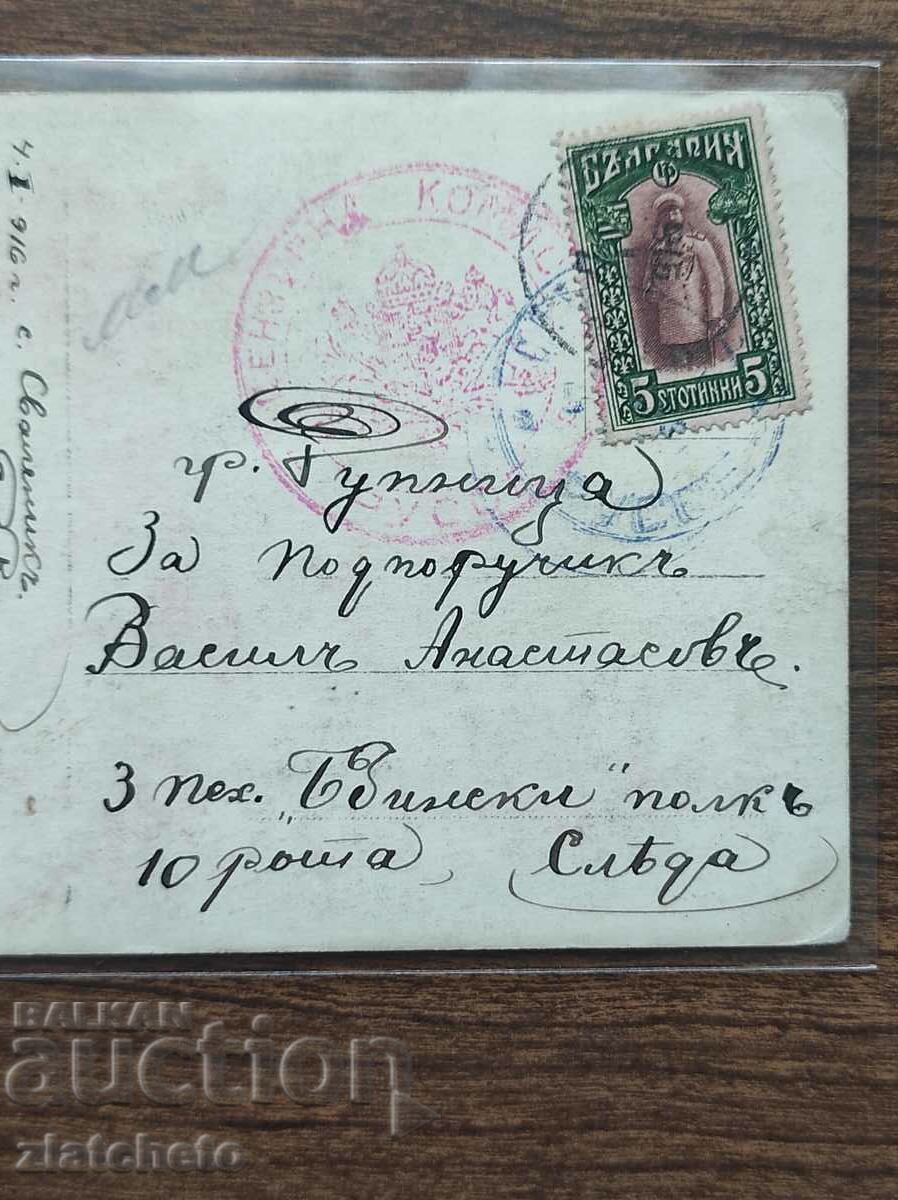 4. I. 916 г. с. Сваленикъ.
ЦЕНЗУРНА КОМИСИЯ
РУСЕ
БЪЛГАРИЯ
5 STOTИНКИ 5
гр. Дупница
За подпоручикъ
Василъ Анастасовъ.
3 пех. „Бдински" полкъ
10 рота, Слѣда
BALKAN
auction
zlatcheto